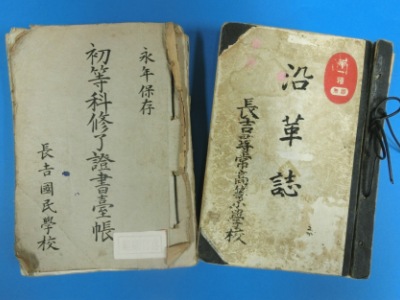 永年保存
初等科修了證書臺帳
長吉國民學校
沿革誌
長吉尋常高等小學校